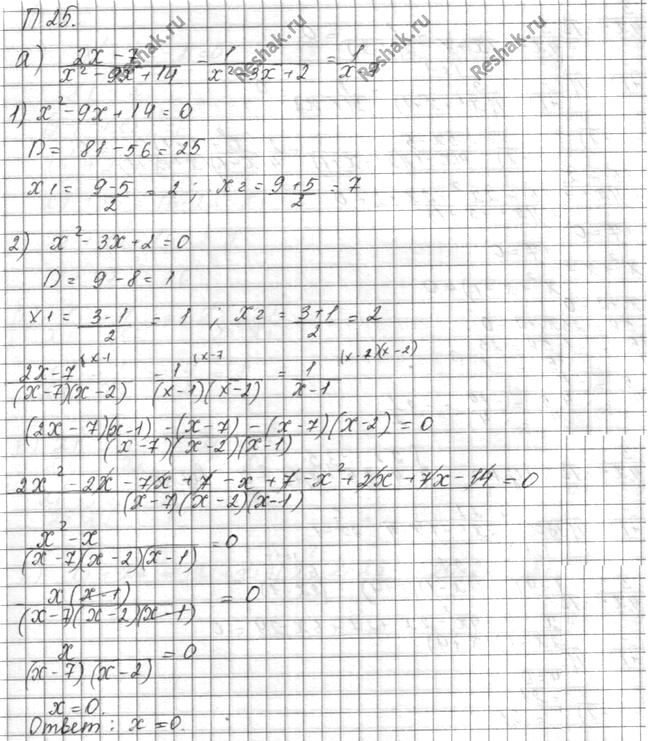 П 25.
а) (2x - 7)/(x² - 9x + 14) - 1/(x² - 3x + 2) = 1/(x - 1)
Reshak.ru Reshak.ru Reshak.ru
1) x² - 9x + 14 = 0
D = 81 - 56 = 25
x1 = (9-5)/2 = 2 ; x2 = (9+5)/2 = 7
2) x² - 3x + 2 = 0
D = 9 - 8 = 1
x1 = (3-1)/2 = 1 ; x2 = (3+1)/2 = 2
(2x - 7)/((x-7)(x-2)) (x-1 - 1/((x-1)(x-2)) (x-7 = 1/(x-1) (x-7)(x-2)
((2x - 7)(x-1) - (x-7) - (x-7)(x-2))/((x-7)(x-2)(x-1)) = 0
(2x² - 2x - 7x + 7 - x + 7 - x² + 2x + 7x - 14)/((x-7)(x-2)(x-1)) = 0
(x² - x)/((x-7)(x-2)(x-1)) = 0
(x(x-1))/((x-7)(x-2)(x-1)) = 0
x/((x-7)(x-2)) = 0
x = 0.
Ответ: x = 0.